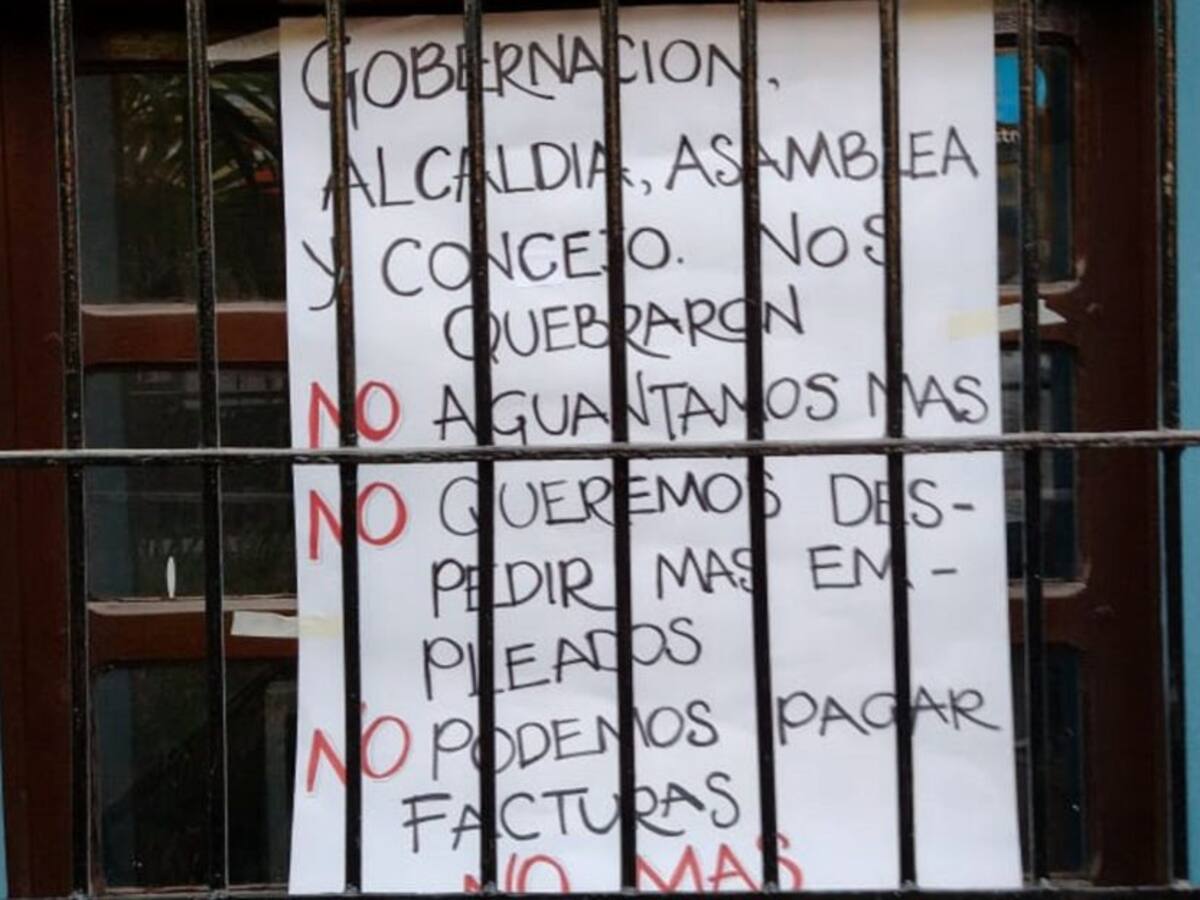 GOBERNACION,
ALCALDIA, ASAMBLEA
Y CONCEJO. NOS
QUEBRARON
NO AGUANTAMOS MAS
NO QUEREMOS DES-
PEDIR MAS EM-
PLEADOS
NO PODEMOS PAGAR
FACTURAS
NO MAS